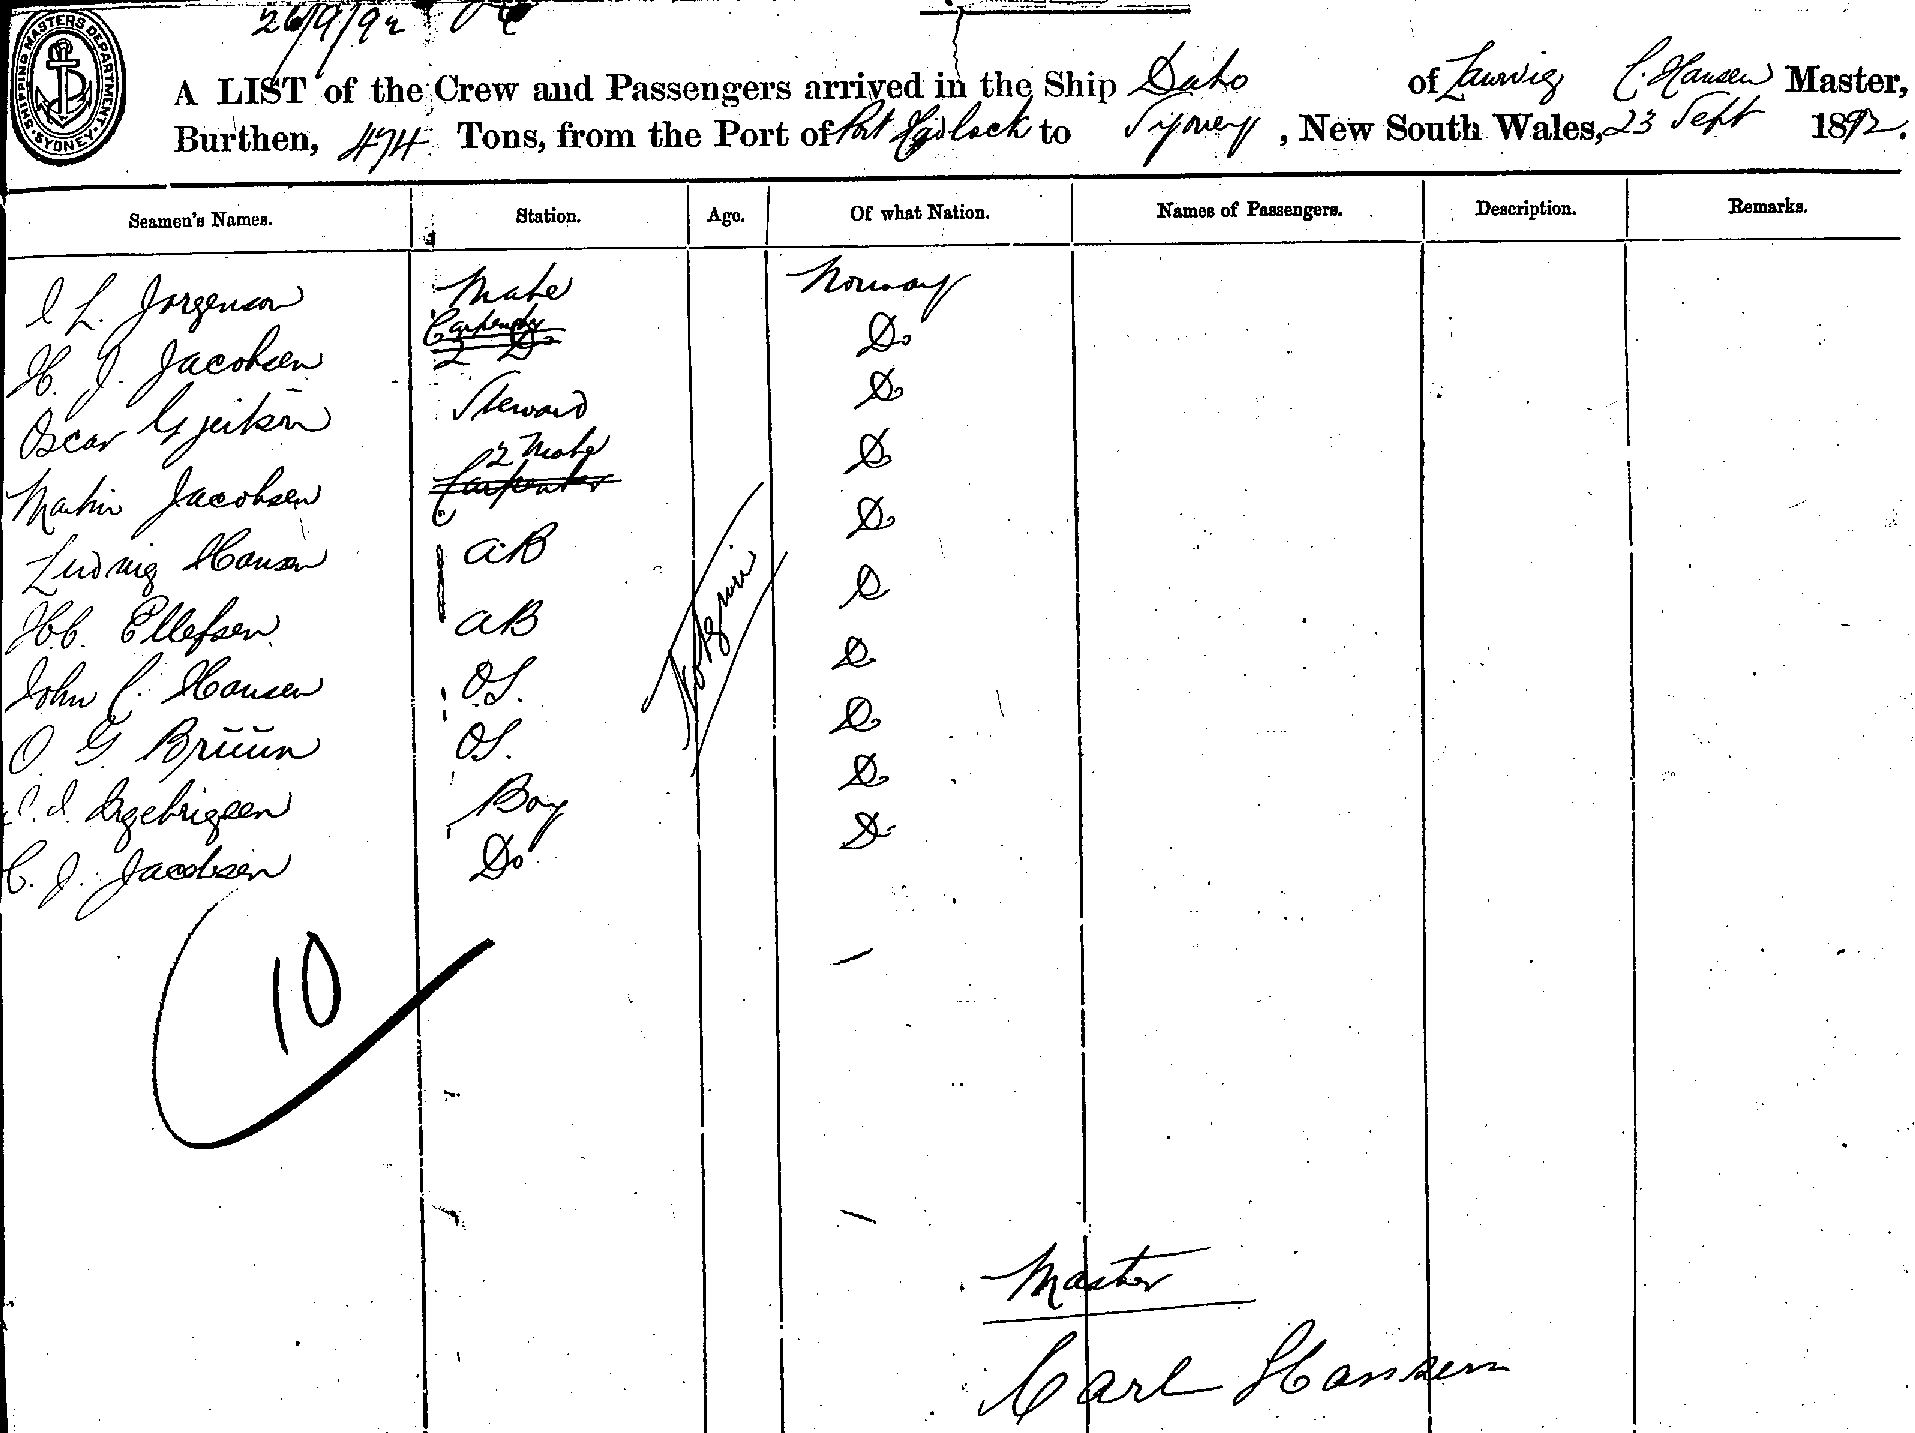 26/9/92
SHIPPING MASTERS DEPARTMENT
SYDNEY
A LIST of the Crew and Passengers arrived in the Ship Dato of Laurvig C. Hansen Master,
Burthen, 474 Tons, from the Port of Port Hadlock to Sydney, New South Wales, 23 Sept 1892.
Seamen's Names. Station. Age. Of what Nation. Names of Passengers. Description. Remarks.
I L. Jorgenson Mate Norway
H. J. Jacobsen Carpenter 2 Do Do
Oscar Steward Do
Martin Jacobsen 2 Mate Carpenter Do
Ludvig Hansen AB Do
H.C. Ellefsen AB D
John C. Hansen O.S. D
O. G. Bruun OS. Do
Boy Do
C. J. Jacobsen Do Do
10
Master
Carl Hansen